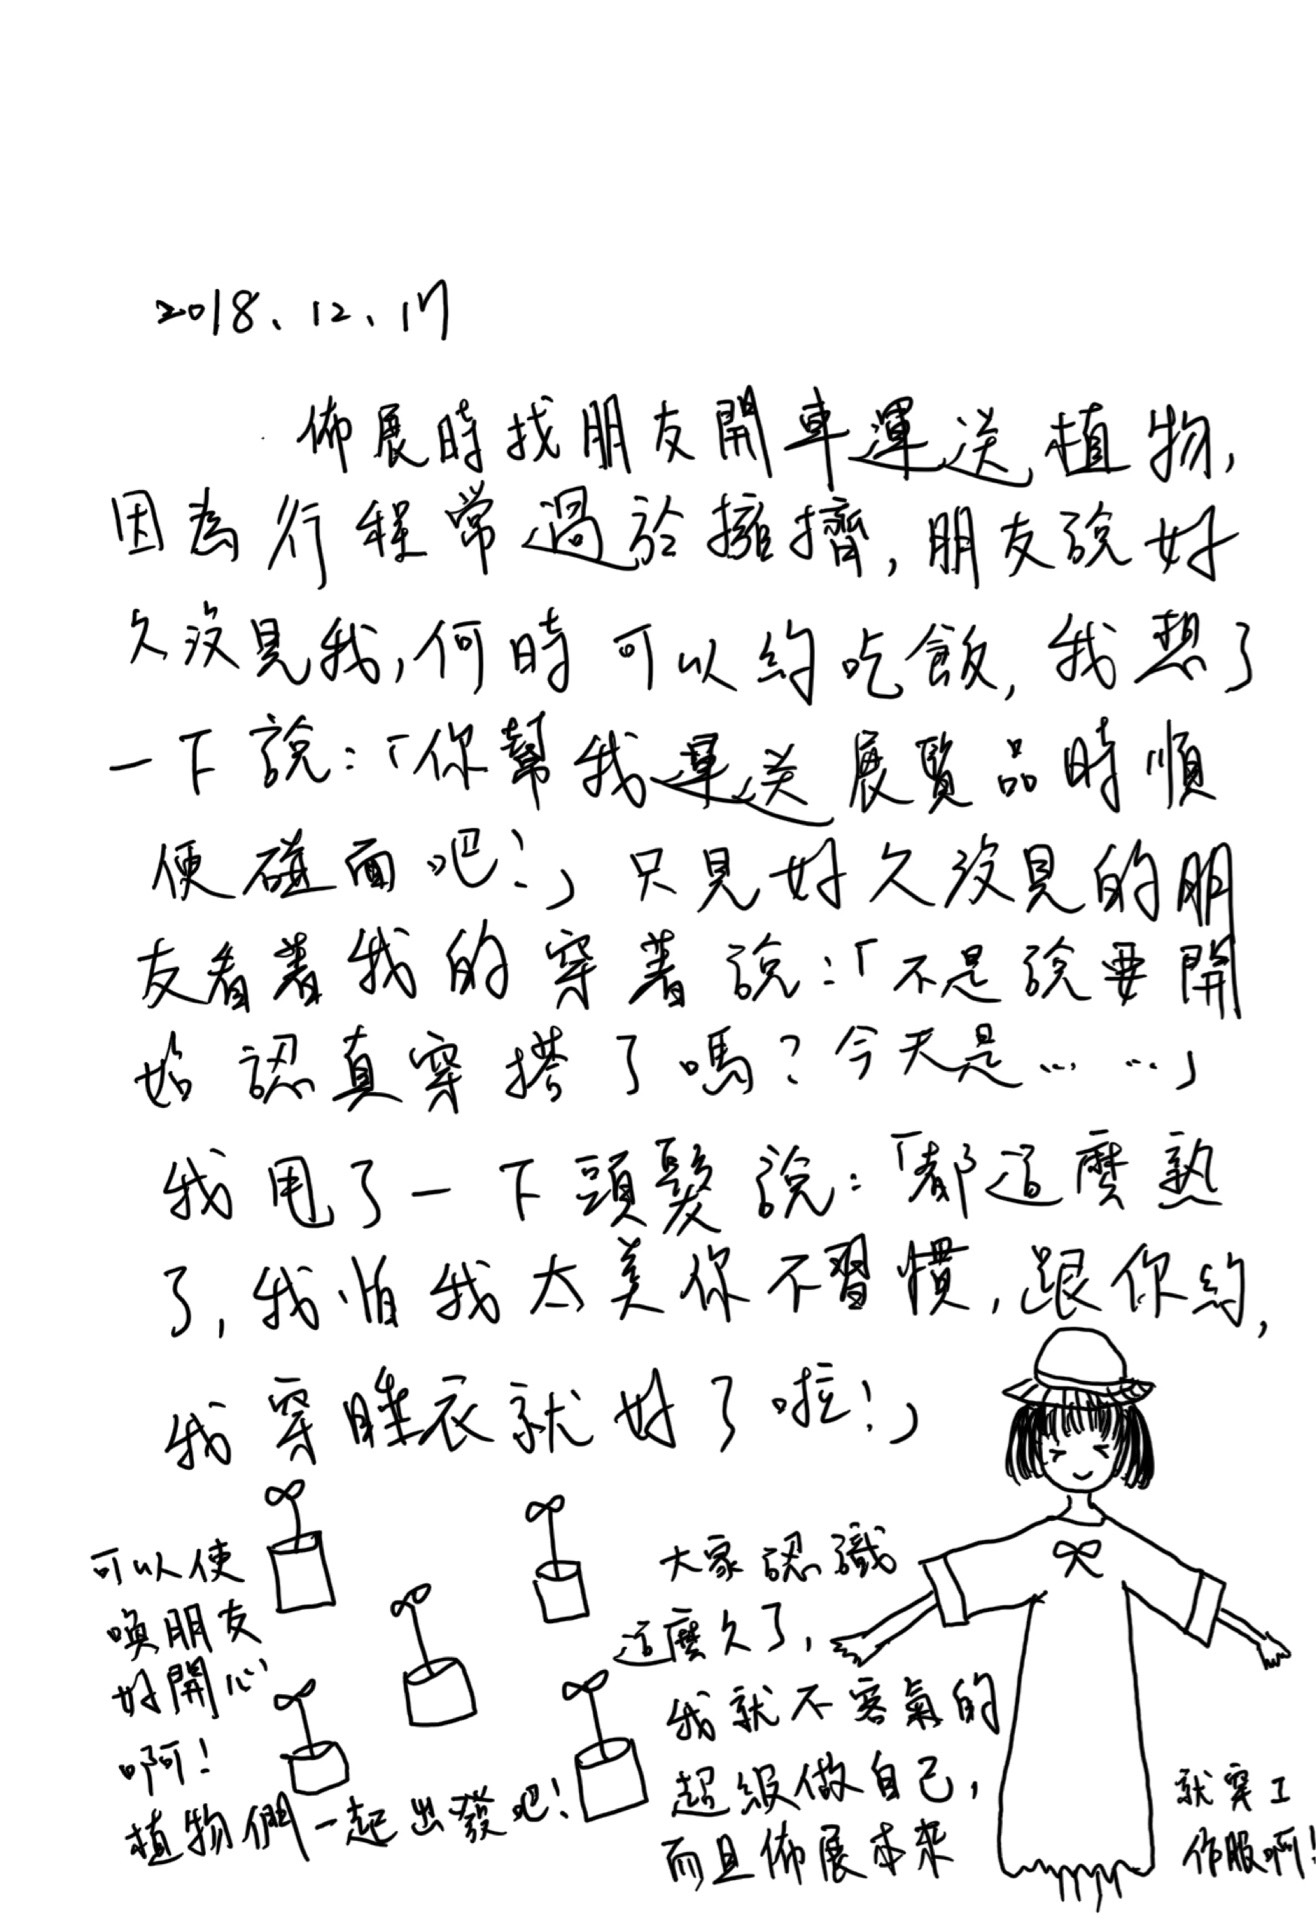 2018、12、17
佈展時找朋友開車運送植物,
因為行程常過於擁擠,朋友說好
久沒見我,何時可以約吃飯,我想了
一下說:「你幫我運送展覽品時順
便碰面吧!」只見好久沒見的朋
友看著我的穿著說:「不是說要開
始認真穿搭了嗎?今天是……」
我甩了一下頭髮說:「都這麼熟
了,我怕我太美你不習慣,跟你約,
我穿睡衣就好了啦!」
可以使
喚朋友
好開心
啊!
植物們一起出發吧!
大家認識
這麼久了,
我就不客氣的
超級做自己,
而且佈展本來
就穿工
作服啊!